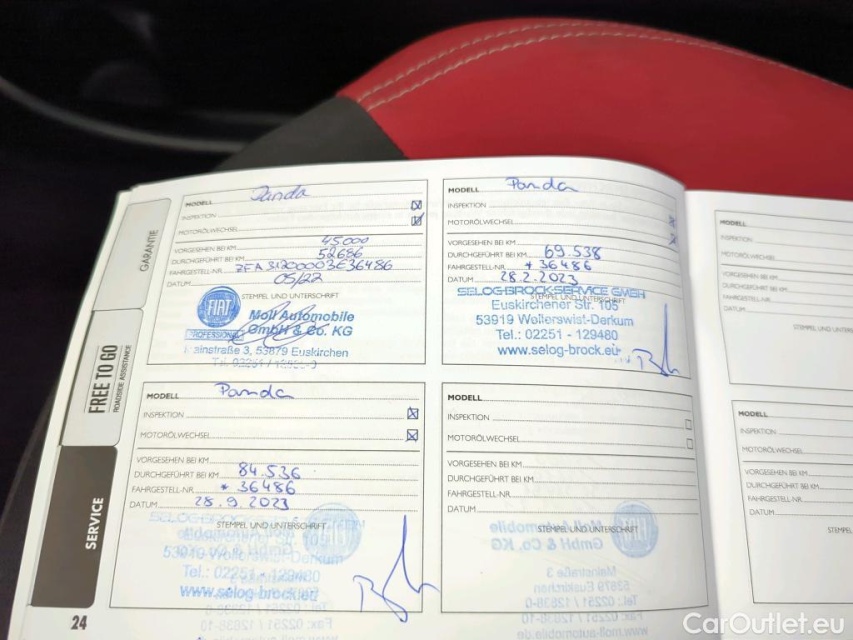 GARANTIE
FREE TO GO
ROADSIDE ASSISTANCE
SERVICE
MODELL Panda
INSPEKTION
MOTORÖLWECHSEL
VORGESEHEN BEI KM 45000
DURCHGEFÜHRT BEI KM 52686
FAHRGESTELL-NR. ZFA31200003E36486
DATUM 05/22
STEMPEL UND UNTERSCHRIFT
FIAT
PROFESSIONAL
Moll Automobile
GmbH & Co. KG
Mainstraße 3, 53879 Euskirchen
MODELL Panda
INSPEKTION
MOTORÖLWECHSEL
VORGESEHEN BEI KM
DURCHGEFÜHRT BEI KM 69.538
FAHRGESTELL-NR. * 36486
DATUM 28.2.2023
STEMPEL UND UNTERSCHRIFT
SELOG-BROCK-SERVICE GMBH
Euskirchener Str. 105
53919 Weilerswist-Derkum
Tel.: 02251 - 129480
www.selog-brock.eu
MODELL Panda
INSPEKTION
MOTORÖLWECHSEL
VORGESEHEN BEI KM
DURCHGEFÜHRT BEI KM 84.536
FAHRGESTELL-NR. * 36486
DATUM 28.9.2023
STEMPEL UND UNTERSCHRIFT
53919 Weilerswist-Derkum
Tel.: 02251 - 129480
www.selog-brock.eu
MODELL
INSPEKTION
MOTORÖLWECHSEL
VORGESEHEN BEI KM
DURCHGEFÜHRT BEI KM
FAHRGESTELL-NR.
DATUM
STEMPEL UND UNTERSCHRIFT
MODELL
INSPEKTION
MOTORÖLWECHSEL
VORGESEHEN BEI KM
DURCHGEFÜHRT BEI KM
FAHRGESTELL-NR.
DATUM
STEMPEL UND UNTERS
MODELL
INSPEKTION
MOTORÖLWECHSEL
VORGESEHEN BEI KM
DURCHGEFÜHRT BEI KM
FAHRGESTELL-NR.
DATUM
STEMPEL
24
CarOutlet.eu